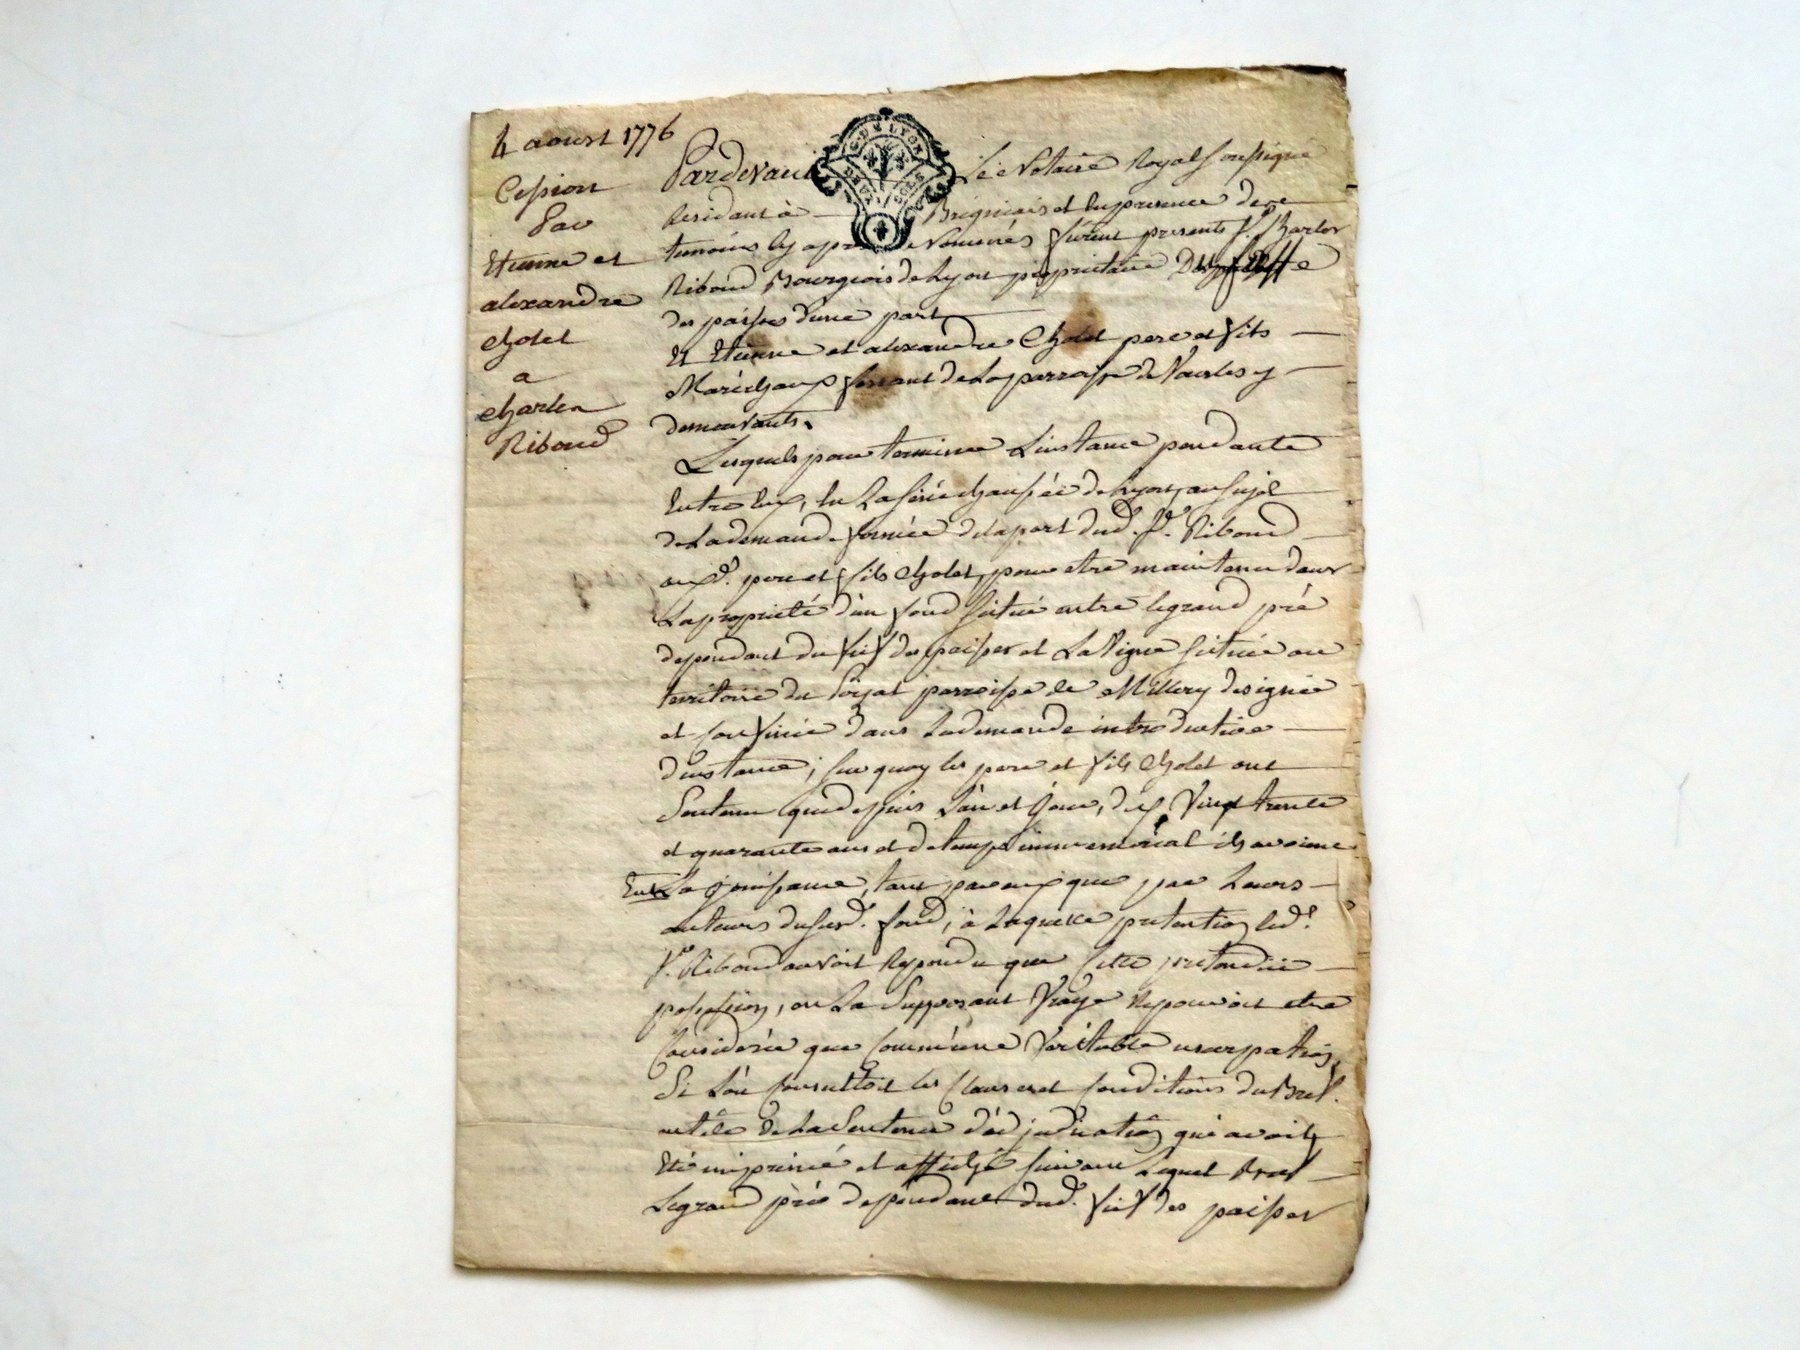 4 aoust 1776
Cession
Par
Etienne et
alexandre
Cholet
a
Charles
Riboud
G. DE LYON
Pardevant Le Notaire Royal soussigné
Residant à Brignais et En presence des
temoins Cy après Nommés furent presents Sr. Charles
Riboud Bourgeois de Lyon proprietaire
des paisses d'une part
Et Etienne et alexandre Cholet pere et fils
Maréchaux ferrant de La parroisse de Vourles y
demeurants.
Lesquels pour terminer L'instance pendante
Entre Eux, En La sénéchaussée de Lyon, au sujet
de La demande formée de la part dud. Sr. Riboud
auxd. pere et fils Cholet, pour etre maintenu dans
La proprieté d'un fond situé entre le grand pré
dependant du fief des paisses et La Vigne située au
territoire du parroisse de Millery designée
et confinée dans La demande introductive
d'instance; sur quoy les pere et fils Cholet ont
Soutenu que depuis L'an et Jour, dix Vingt trente
et quarante ans et de temps immemorial ils avoient
Eut La jouissance, tant par eux que par Leurs
auteurs dususd. fond, à Laquelle pretention led.
Sr. Riboud auroit Repondu que cette pretendue
possession, en La Supposant Vraye Ne pouvoit etre
Considérée que Comme une Veritable usurpation,
Si L'on Consultoit les Clauses et Conditions du Bref.
de La Sentence d'adjudication qui avoit
Eté imprimé et affiché suivant Lequel Bref
Le grand pré dependant dud. fief des paisses